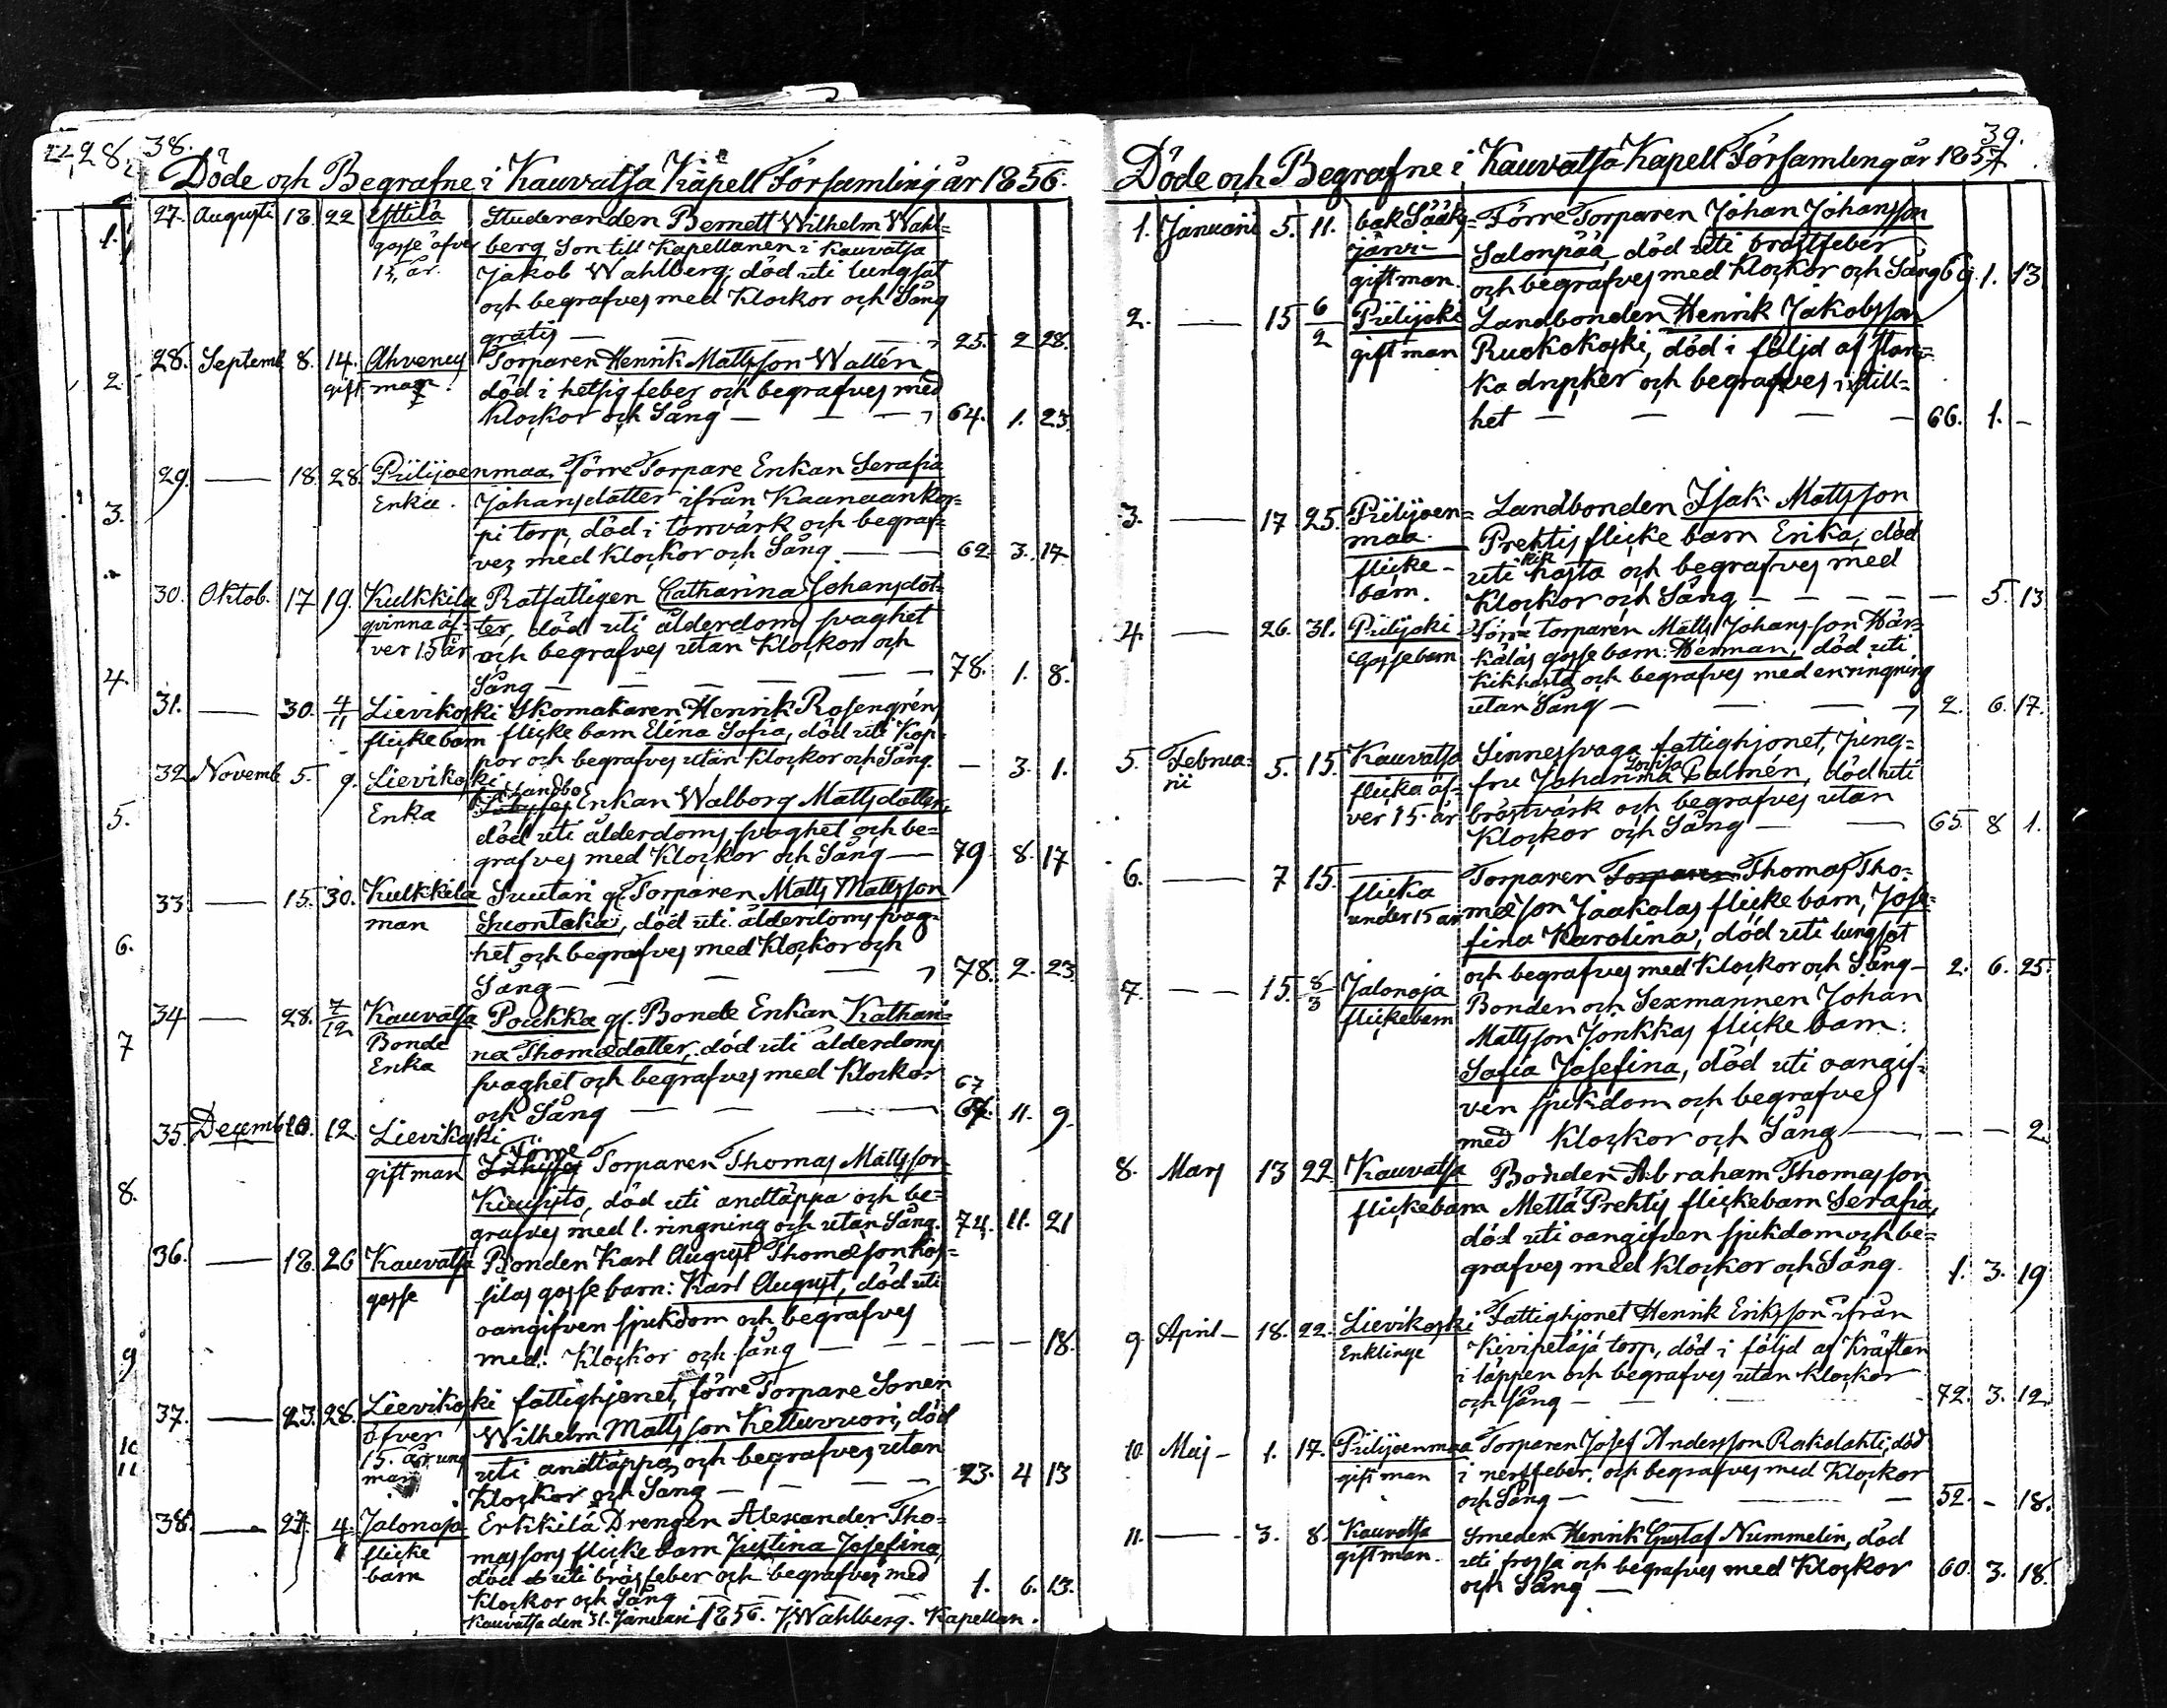 28. 38.
Döde och Begrafne i Kauvatsa Kapell Församling år 1856.
27. Augusti 18. 22 Yttilä Studeranden Bernett Wilhelm Wahl=
gosse öfver berg, Son till Kapellanen i Kauvatsa
15, år. Jakob Wahlberg; död uti lungsot
och begrafves med Klockor och Sång
gratis — 25. 2 28.
28. Septemb. 8. 14. Ahvenus Torparen Henrik Mattsson Wallén
gift man död i hetsig feber och begrafves med
Klockor och Sång — — — 64. 1. 23.
29. — 18. 28. Piilijoenmaa Förre Torpare Enkan Serafia
Enka. Johansdotter ifrån Kaanaankor=
pi torp, död i torrvärk och begraf=
ves med Klockor och Sång — — 62 3. 17.
30. Oktob. 17 19. Kulkkila Rotfattigen Catharina Johansdot=
qvinna öf= ter, död uti ålderdoms svaghet
ver 15 år och begrafves utan Klockor och
Sång — — — — — 78. 1. 8.
31. — 30. 4/11 Lievikoski Skomakaren Henrik Rosengréns
flickebarn flicke barn Elina Sofia, död uti Kop=
por och begrafves utan Klockor och Sång. — 3. 1.
32 Novemb. 5. 9. Lievikoski Landbo
Enka Enkan Walborg Mattsdotter,
död uti ålderdoms svaghet och be=
grafves med Klockor och Sång — 79 8. 17
33. — 15. 30. Kulkkila Suutari gl. Torparen Matts Mattsson
man Suontaka, död uti ålderdoms svag=
het och begrafves med Klockor och
Sång — — — 78. 2. 23.
34 — 28. 7/12 Kauvatsa Poukka gl. Bonde Enkan Kathari=
Bonde na Thomædotter, död uti ålderdoms
Enka svaghet och begrafves med Klockor
67
och Sång — — — 11. 9.
35. Decemb. 10. 12. Lievikoski
Förre
gift man Torparen Thomas Mattsson
Kuusisto, död uti andtäppa och be=
grafves med 1. ringning och utan Sång. 74. 11. 21
36. — 18. 26 Kauvatsa Bonden Karl August Thomæson Kos=
gosse silas gosse barn: Karl August, död uti
oangifven sjukdom och begrafves
med. Klockor och sång — — — 18.
37. — 23. 28. Lievikoski fattighjonet, förre Torpare Sonen
öfver Wilhelm Mattsson Kettuvuori, död
15. år ung uti andtäppa och begrafves utan
man Klockor och Sång — — — 23. 4 13
38. — 27. 4/1 Jalonoja Erkkilä Drengen Alexander Tho=
flicke massons flicke barn Justina Josefina,
barn död uti bröstfeber och begrafves med
Klockor och Sång — 1. 6. 13.
Kauvatsa den 31. Januari 1856. J. Wahlberg. Kapellan.
1.
2
3.
4.
5.
6.
7
8.
9
10
11
39.
Döde och Begrafne i Kauvatsa Kapell Församling år 1857.
1. Januarii 5. 11. bak Sääks= Förre Torparen Johan Johansson
järvi Salonpää, död uti bröstfeber
gift man. och begrafves med Klockor och Sång 69. 1. 13
2. — 15 6/2 Piilijoki Landbonden Henrik Jakobsson
gift man Ruokokoski, död i följd af star=
ka drycker och begrafves i still=
het — — — — 66. 1. —
3. — 17 25. Piilijoen= Landbonden Isak Mattsson
maa. Prektis flicke barn Erika, död
flicke- uti kikhosta och begrafves med
barn. Klockor och Sång — — — — 5. 13
4. — 26. 31. Piilijoki Förre torparen Matts Johansson Här=
Gossebarn käläs gosse barn: Herman, död uti
kikhosta och begrafves med en ringning
utan Sång — — — 2. 6. 17.
5. Februa= 5. 15. Kauvatsa Sinnessvaga fattighjonet, Jung=
rii flicka öf= fru Johanna Lovisa Palmén, död uti
ver 15. år bröstvärk och begrafves utan
Klockor och Sång — — 65. 8 1.
6. — 7 15. — Torparen Torparen Thomas Tho=
flicka mæson Jaakolas flicke barn, Jose=
under 15 år fina Karolina, död uti lungsot
och begrafves med Klockor och Sång — 2. 6. 25.
7. — — 15. 8/3 Jalonoja Bonden och Sexmannen Johan
flickebarn Mattsson Jonkkas flicke barn:
Sofia Josefina, död uti oangif=
ven sjukdom och begrafves
med Klockor och Sång — — — 2
8. Mars 13 22. Kauvatsa Bonden Abraham Thomasson
flickebarn Mettä Prektis flickebarn Serafia,
död uti oangifven sjukdom och be=
grafves med Klockor och Sång. 1. 3. 19
9. April — 18. 22. Lievikoski Fattighjonet Henrik Eriksson ifrån
Enklinge Kivipetäjä torp, död i följd af Kräftan
i läppen och begrafves utan klockor
och sång — 72. 3. 12.
10. Maj — 1. 17. Piilijoenmaa Torparen Josef Andersson Rakolahti, död
gift man i nerffeber, och begrafves med Klockor
och Sång — — — — 52. — 18.
11. — 3. 8. Kauvatsa Smeden Henrik Gustaf Nummelin, död
gift man. uti frossa och begrafves med Klockor
och Sång — 60. 3. 18.